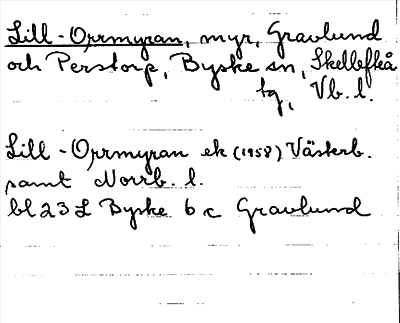 Lill-Orrmyran, myr, Gravlund
och Perstorp, Byske sn, Skellefteå
tg, Vb. l.
Lill-Orrmyran ek (1958) Västerb.
samt Norrb. l.
bl 23 L Byske 6 c Gravlund